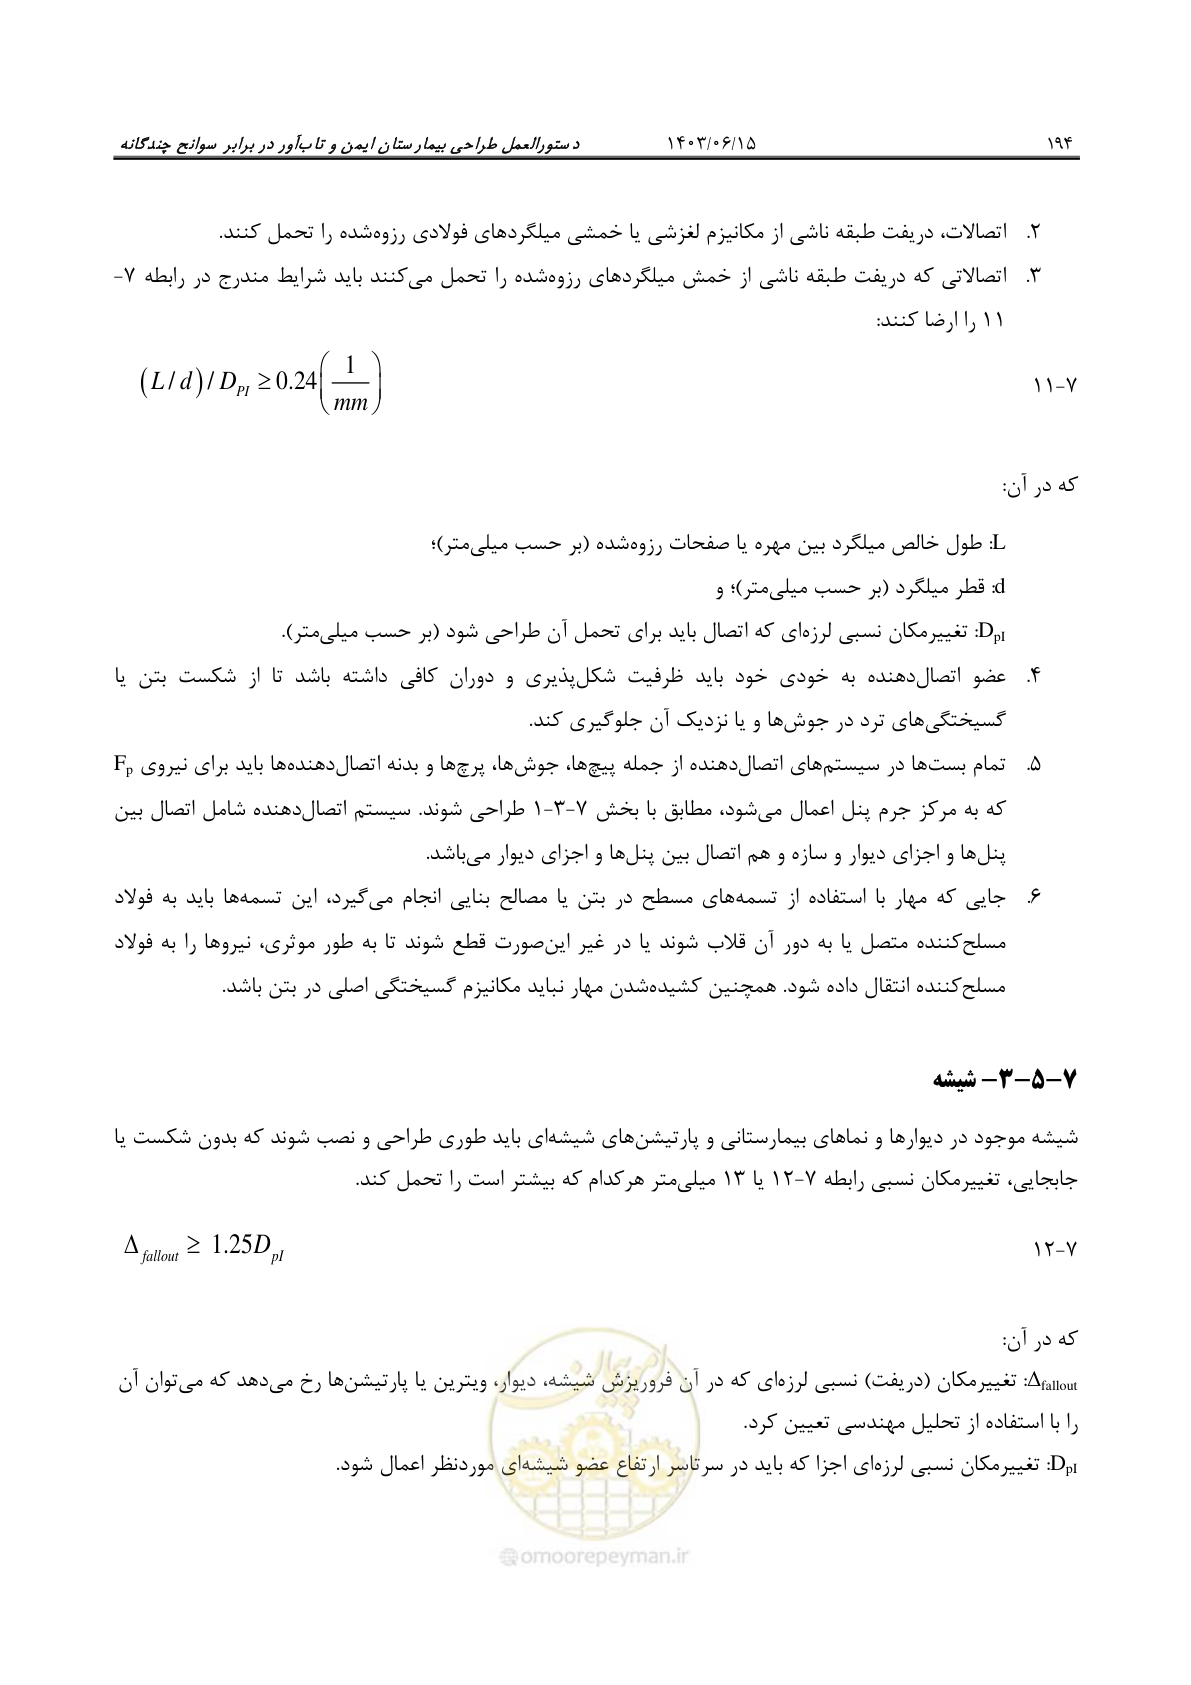 ۱۹۴ ۱۴۰۳/۰۶/۱۵ دستورالعمل طراحی بیمارستان ایمن و تاب‌آور در برابر سوانح چندگانه
۲. اتصالات، دریفت طبقه ناشی از مکانیزم لغزشی یا خمشی میلگردهای فولادی رزوه‌شده را تحمل کنند.
۳. اتصالاتی که دریفت طبقه ناشی از خمش میلگردهای رزوه‌شده را تحمل می‌کنند باید شرایط مندرج در رابطه ۷-
۱۱ را ارضا کنند:
۱۱-۷ (L/d)/D_PI ≥ 0.24(1/mm)
که در آن:
L: طول خالص میلگرد بین مهره یا صفحات رزوه‌شده (بر حسب میلی‌متر)؛
d: قطر میلگرد (بر حسب میلی‌متر)؛ و
DpI: تغییرمکان نسبی لرزه‌ای که اتصال باید برای تحمل آن طراحی شود (بر حسب میلی‌متر).
۴. عضو اتصال‌دهنده به خودی خود باید ظرفیت شکل‌پذیری و دوران کافی داشته باشد تا از شکست بتن یا
گسیختگی‌های ترد در جوش‌ها و یا نزدیک آن جلوگیری کند.
۵. تمام بست‌ها در سیستم‌های اتصال‌دهنده از جمله پیچ‌ها، جوش‌ها، پرچ‌ها و بدنه اتصال‌دهنده‌ها باید برای نیروی Fp
که به مرکز جرم پنل اعمال می‌شود، مطابق با بخش ۷-۳-۱ طراحی شوند. سیستم اتصال‌دهنده شامل اتصال بین
پنل‌ها و اجزای دیوار و سازه و هم اتصال بین پنل‌ها و اجزای دیوار می‌باشد.
۶. جایی که مهار با استفاده از تسمه‌های مسطح در بتن یا مصالح بنایی انجام می‌گیرد، این تسمه‌ها باید به فولاد
مسلح‌کننده متصل یا به دور آن قلاب شوند یا در غیر این‌صورت قطع شوند تا به طور موثری، نیروها را به فولاد
مسلح‌کننده انتقال داده شود. همچنین کشیده‌شدن مهار نباید مکانیزم گسیختگی اصلی در بتن باشد.
۷-۵-۳- شیشه
شیشه موجود در دیوارها و نماهای بیمارستانی و پارتیشن‌های شیشه‌ای باید طوری طراحی و نصب شوند که بدون شکست یا
جابجایی، تغییرمکان نسبی رابطه ۷-۱۲ یا ۱۳ میلی‌متر هرکدام که بیشتر است را تحمل کند.
۱۲-۷ Δ_fallout ≥ 1.25D_pI
که در آن:
Δfallout: تغییرمکان (دریفت) نسبی لرزه‌ای که در آن فروریزش شیشه، دیوار، ویترین یا پارتیشن‌ها رخ می‌دهد که می‌توان آن
را با استفاده از تحلیل مهندسی تعیین کرد.
DpI: تغییرمکان نسبی لرزه‌ای اجزا که باید در سرتاسر ارتفاع عضو شیشه‌ای موردنظر اعمال شود.
امور پیمان
@omoorepeyman.ir